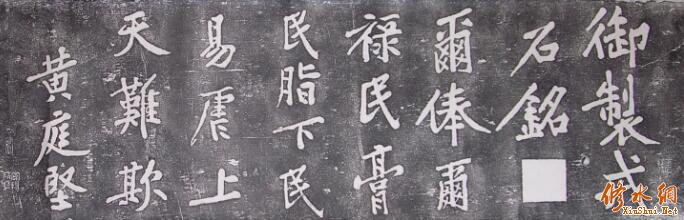 御製戒
石銘
爾俸爾
禄民膏
民脂下民
易虐上
天難欺
黄庭堅
修水網
XiuShui.Net